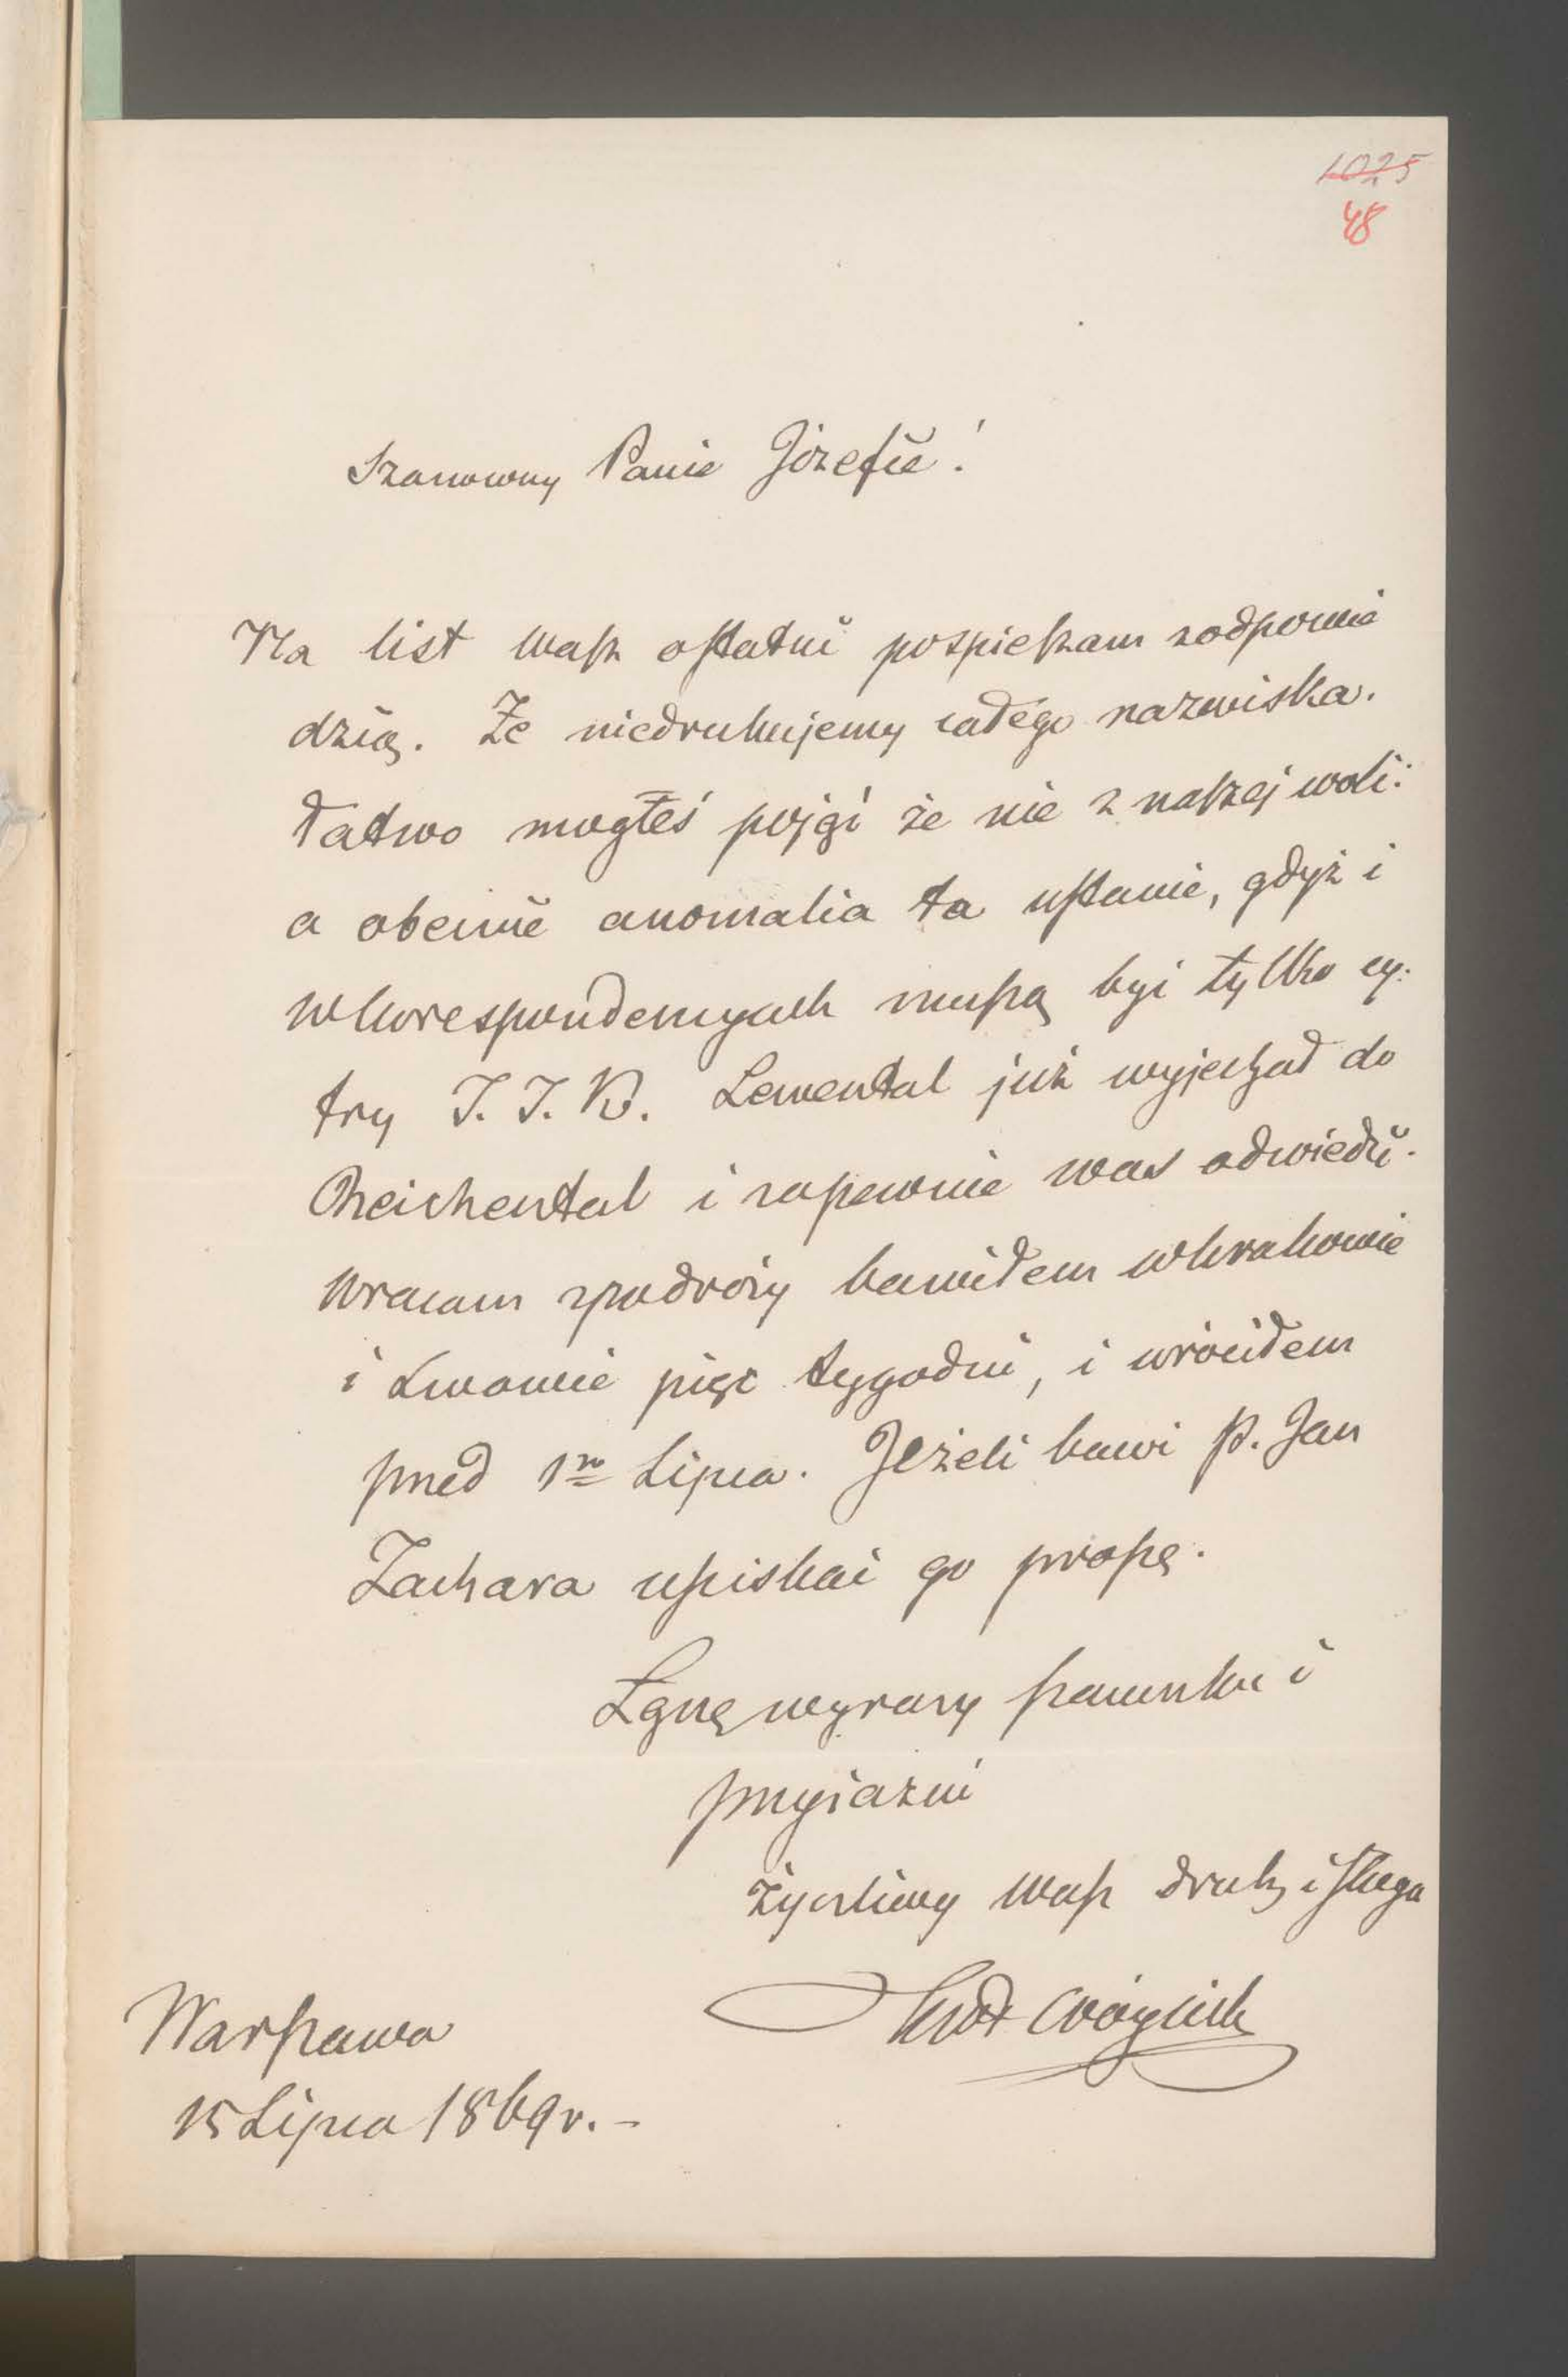 1025
48
Szanowny Panie Józefie!
Na list Wasz ostatni pospieszam zodpowie
dzią. Że niedrukujemy całego nazwiska.
łatwo mogłeś pojąć że nie z naszej woli:
a obecnie anomalia ta ustanie, gdyż i
wkorespondencyach muszą być tylko cy:
fry J. I. K. Lewental już wyjechał do
Reichental i zapewnie was odwiedzi.
Wracam zpodróży bawiłem wkrakowie
i Lwowie pięć tygodni, i wróciłem
przed 1m Lipca. Jeżeli bawi p. Jan
Zachara uściskać go proszę.
Łączę wyrazy szacunku i
przyjaźni
życzliwy Wasz druh i sługa
Kwł Wóycicki
Warszawa
15 Lipca 1869 r. -